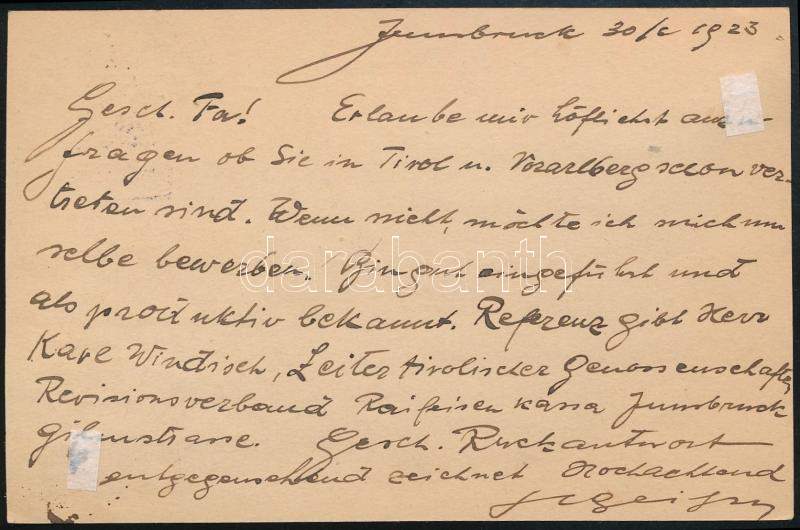 Innsbruck 30/6 1923
Gesch. Fa! Erlaube mir höflichst anzu-
fragen ob Sie in Tirol u. Vorarlberg schon ver-
treten sind. Wenn nicht, möchte ich mich um
selbe bewerben. Bin gut eingeführt und
als produktiv bekannt. Referenz gibt Herr
Karl Windisch, Leiter tirolischer Genossenschafts
Revisionsverband Raifeisen kassa Innsbruck
gilmstrasse. Gesch. Rückantwort
entgegensehend zeichnet Hochachtend
darabanth